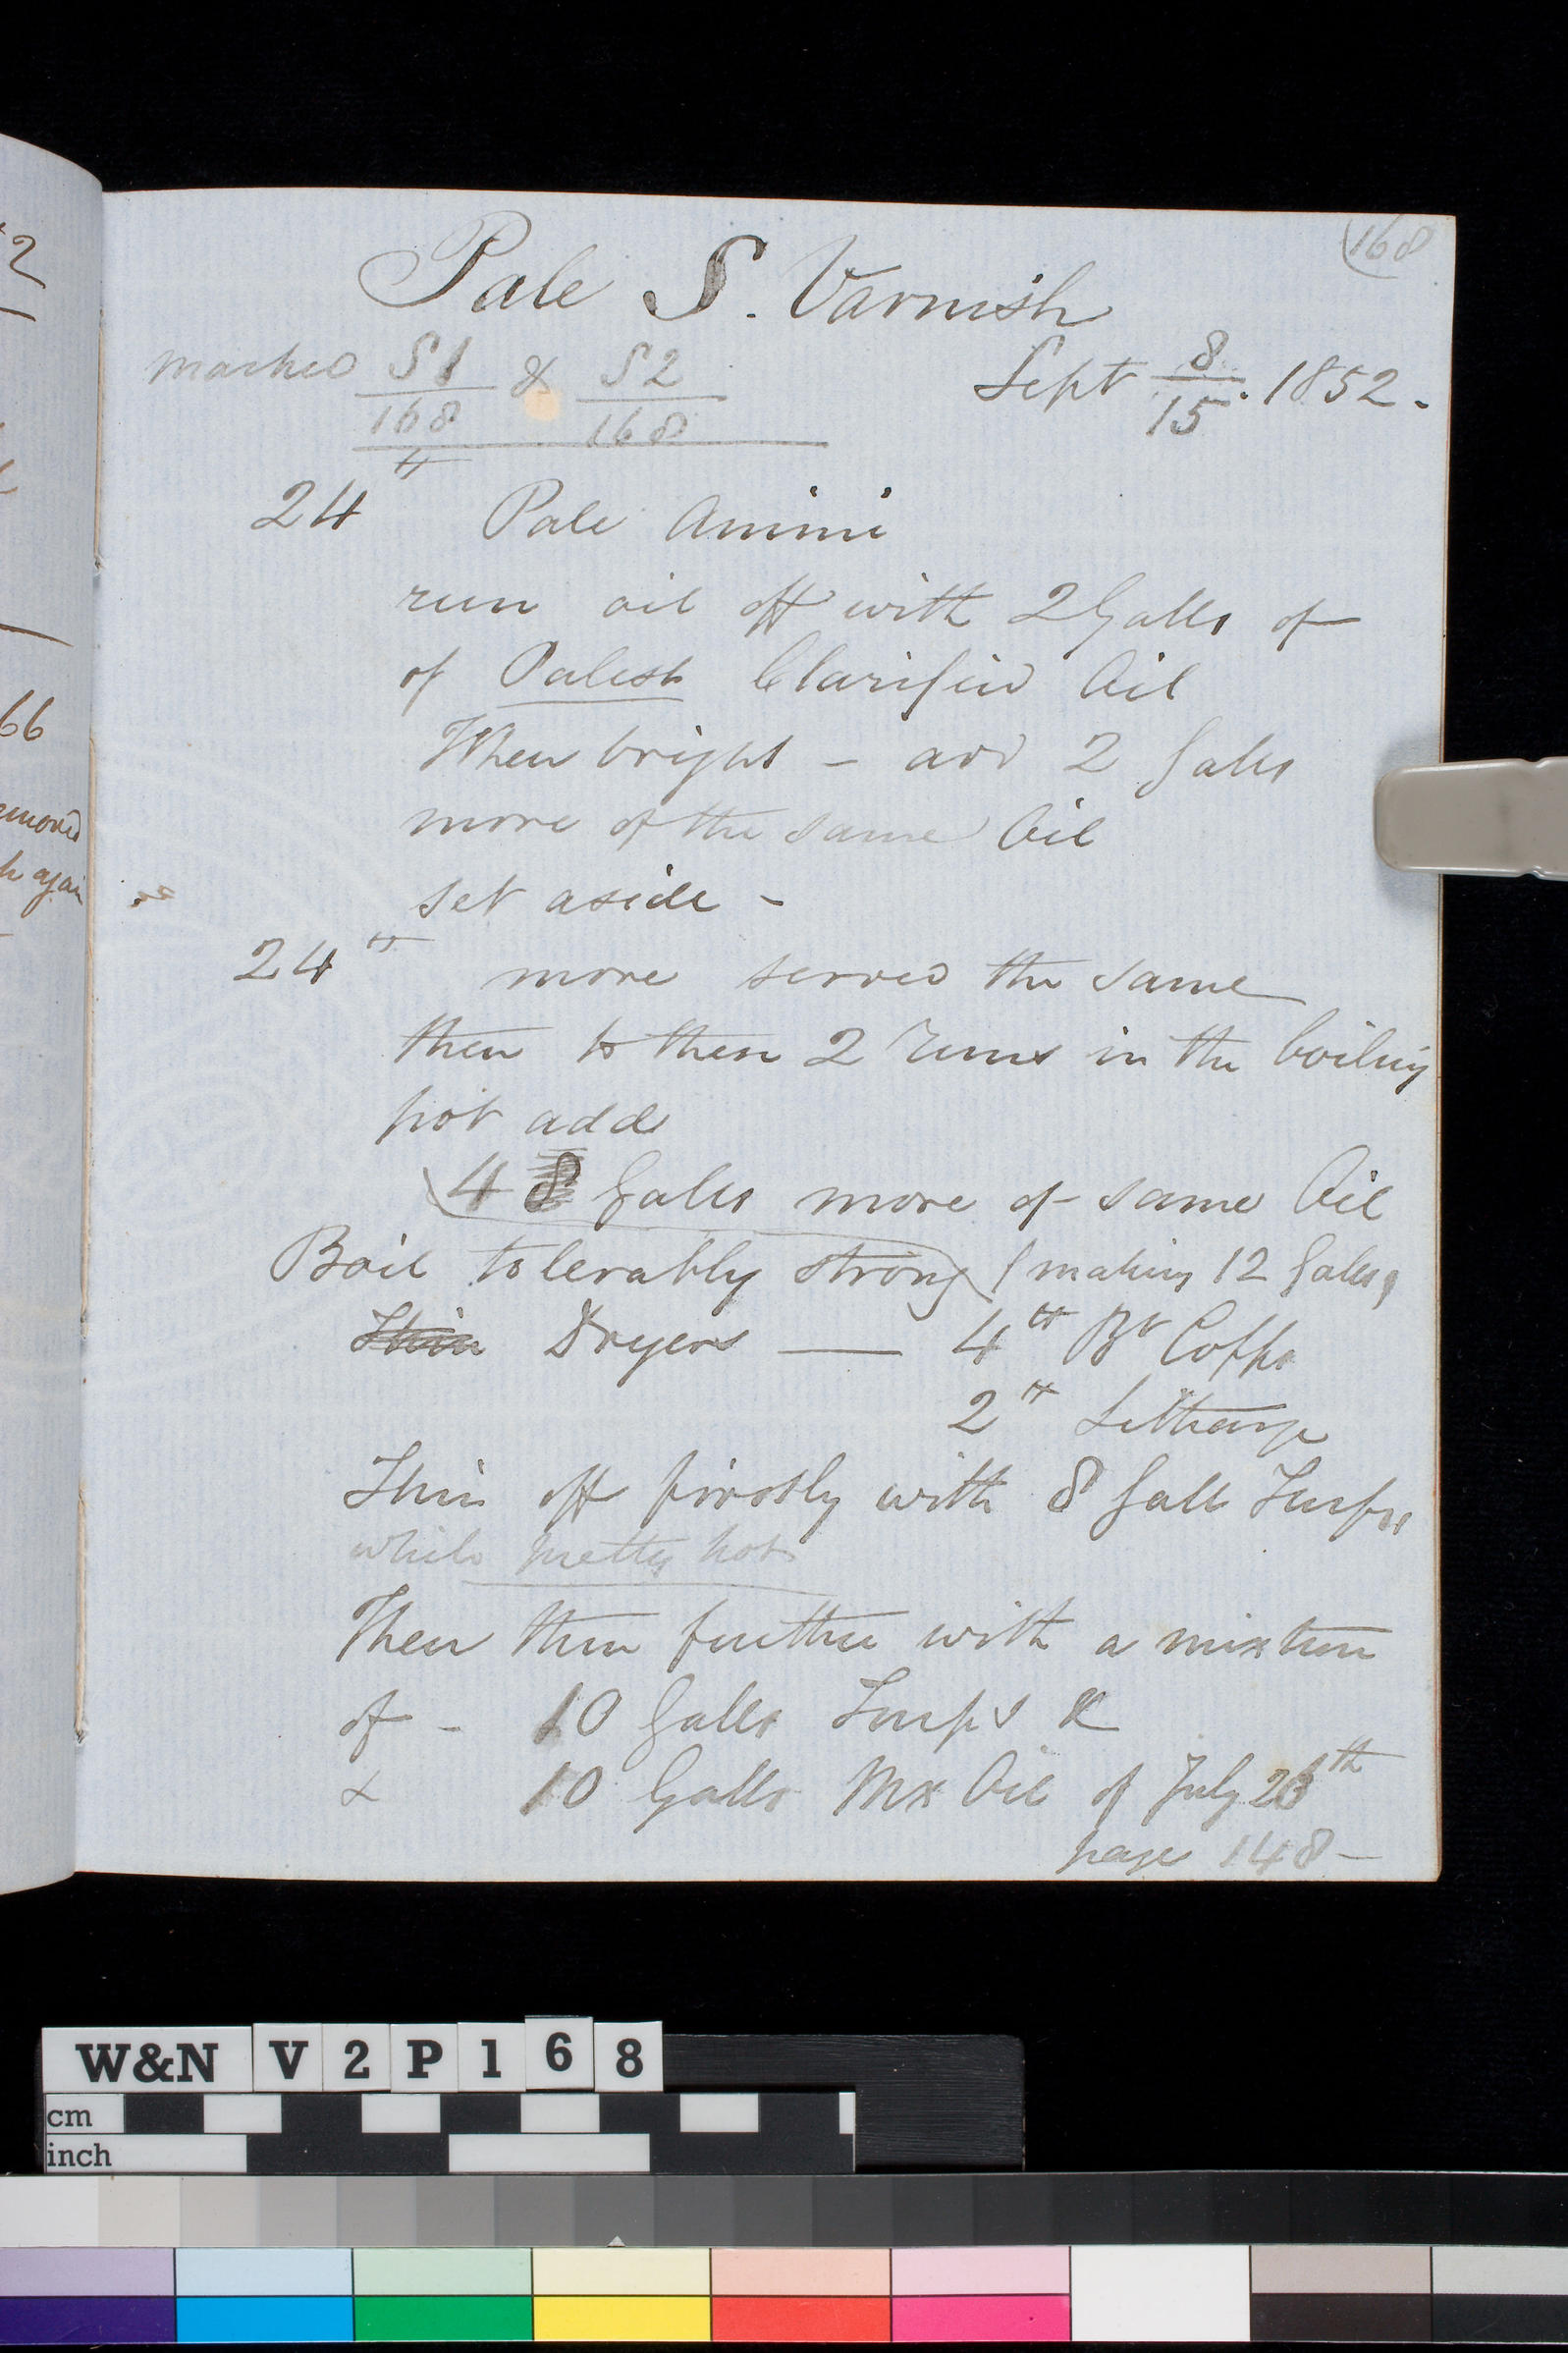 168
Pale S. Varnish
marked S1/168 & S2/168
Sept 8/15. 1852.
24 lb Pale Animi
run oil off with 2 Galls of
of Palest Clarified Oil
When bright - add 2 Galls
more of the same Oil
set aside -
24 lb more served the same
then to these 2 runs in the boiling
pot add
4 8 Galls more of same Oil
Boil tolerably strong (making 12 Galls,
Thin Dryers — 4 lb Bt Copps
2 lb Litharge
Thin off firstly with 8 Gall Turps,
while pretty hot
Then thin further with a mixture
of - 10 Galls Turps &
& 10 Galls Mx Oil of July 23th
page 148 -
2
66
emoved
h again
W&N V2P168
cm
inch